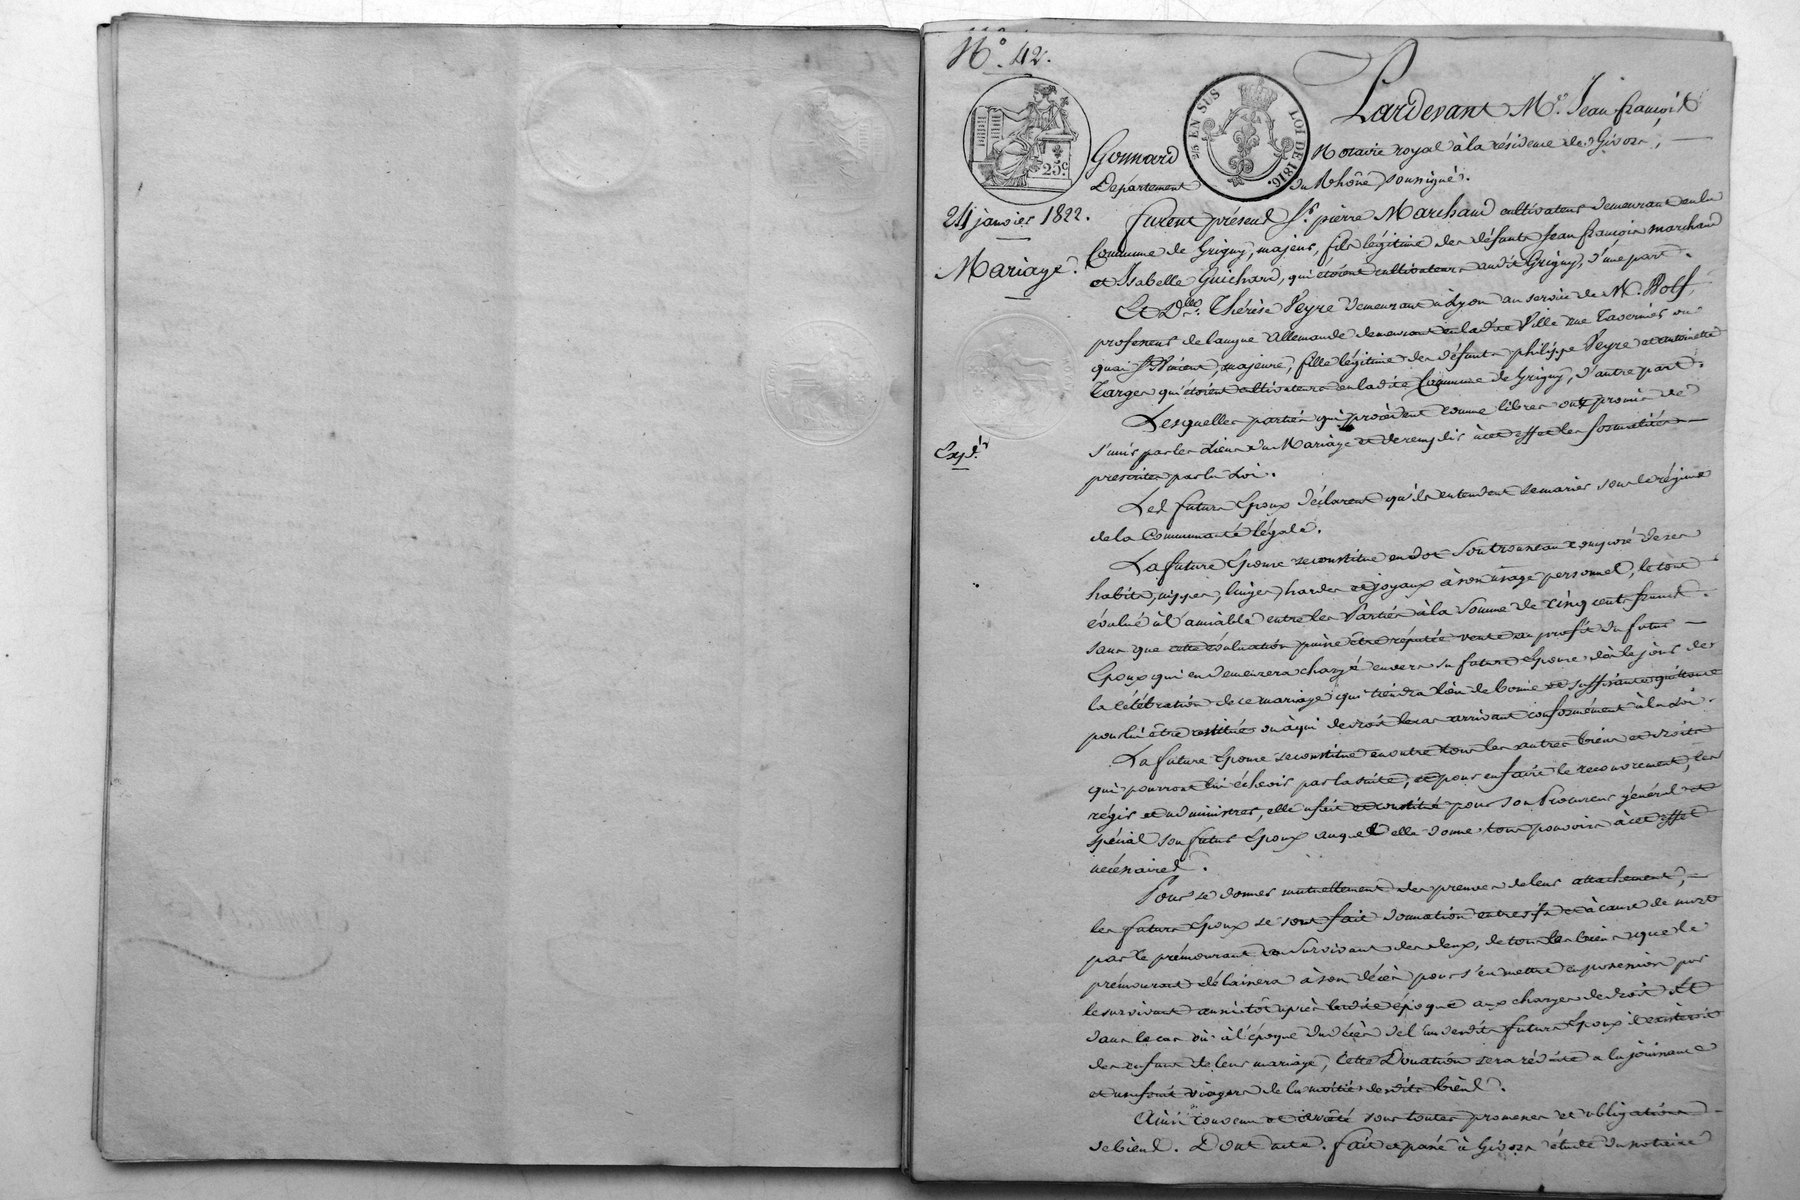 N.° 42.
25 c
2/5 EN SUS LOI DE 1816.
24 janvier 1822.
Mariage.
Exp.
Pardevant M.e Jean françois
Gonnard Notaire royal à la résidence de Givors,
Département du Rhône, soussigné.
furent présens S.r pierre Marchand cultivateur demeurant en la
Commune de Grigny, majeur, fils légitime des défunts Jean françois marchand
et Isabelle Guichard, qui étoient cultivateurs audit Grigny, d'une part.
Et D.lle Thérèse Peyre demeurant à Lyon au service de M.
professeur de langue Allemande demeurant en ladite Ville rue ou
quai St Vincent, majeure, fille légitime des défunts philippe Peyre et antoinette
qui étoient cultivateurs en ladite Commune de Grigny, d'autre part.
Lesquelles parties qui procèdent comme libres ont promis de
s'unir par les Liens du Mariage et de remplir à cet effet les formalités
prescrites par la Loi.
Les futurs Epoux déclarent qu'ils entendent se marier sous le régime
de la Communauté légale.
La future Epouse se constitue en dot Son trousseau composé de ses
habits, nippes, linges, hardes et joyaux à son usage personnel, le tout
évalué à l'amiable entre les Parties à la Somme de cinq cents francs.
sans que cette évaluation puisse être réputée vente au profit du futur
Epoux qui en demeurera chargé envers sa future Epouse dès le jour de
la célébration de ce mariage qui tiendra lieu de bonne et suffisante quittance
pour lui être restitué ou à qui de droit le cas arrivant conformément à la Loi.
La future Epouse se constitue en outre tous les autres biens et droits
qui pourront lui échoir par la suite, et pour en faire le recouvrement, les
régir et administrer, elle a fait et constitué pour son Procureur général et
spécial son futur Epoux auquel elle donne tous pouvoirs à cet effet
nécessaires.
Pour se donner mutuellement des preuves de leur attachement,
les futurs Epoux se sont fait donation entre vifs et à cause de mort
par le prémourant au Survivant des deux, de tous les biens que le
prémourant délaissera à son décès pour s'en mettre en possession par
le survivant aussitôt après ladite époque aux charges de droit Et
dans le cas où à l'époque du décès de l'Un desdits futurs Epoux il existeroit
des enfans de leur mariage, Cette Donation sera réduite à la jouissance
et usufruit viagers de la moitié desdits biens.
Ainsi convenu et arrêté sous toutes promesses et obligations
de biens. Dont acte. fait et passé à Givors étude du notaire